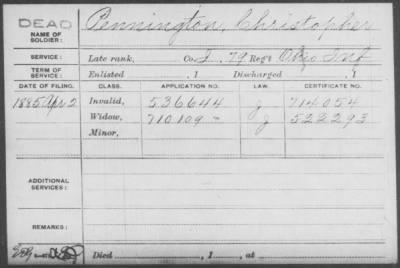 DEAD
NAME OF SOLDIER: Pennington, Christopher
SERVICE: Late rank, Co. I, 79 Reg't Ohio Inf
TERM OF SERVICE: Enlisted , 1 Discharged , 1
DATE OF FILING. CLASS. APPLICATION NO. LAW. CERTIFICATE NO.
1885 Apr 2 Invalid, 536644 J 714054
Widow, 710109 - J 522293
Minor,
ADDITIONAL SERVICES:
REMARKS:
Died , 1 , at